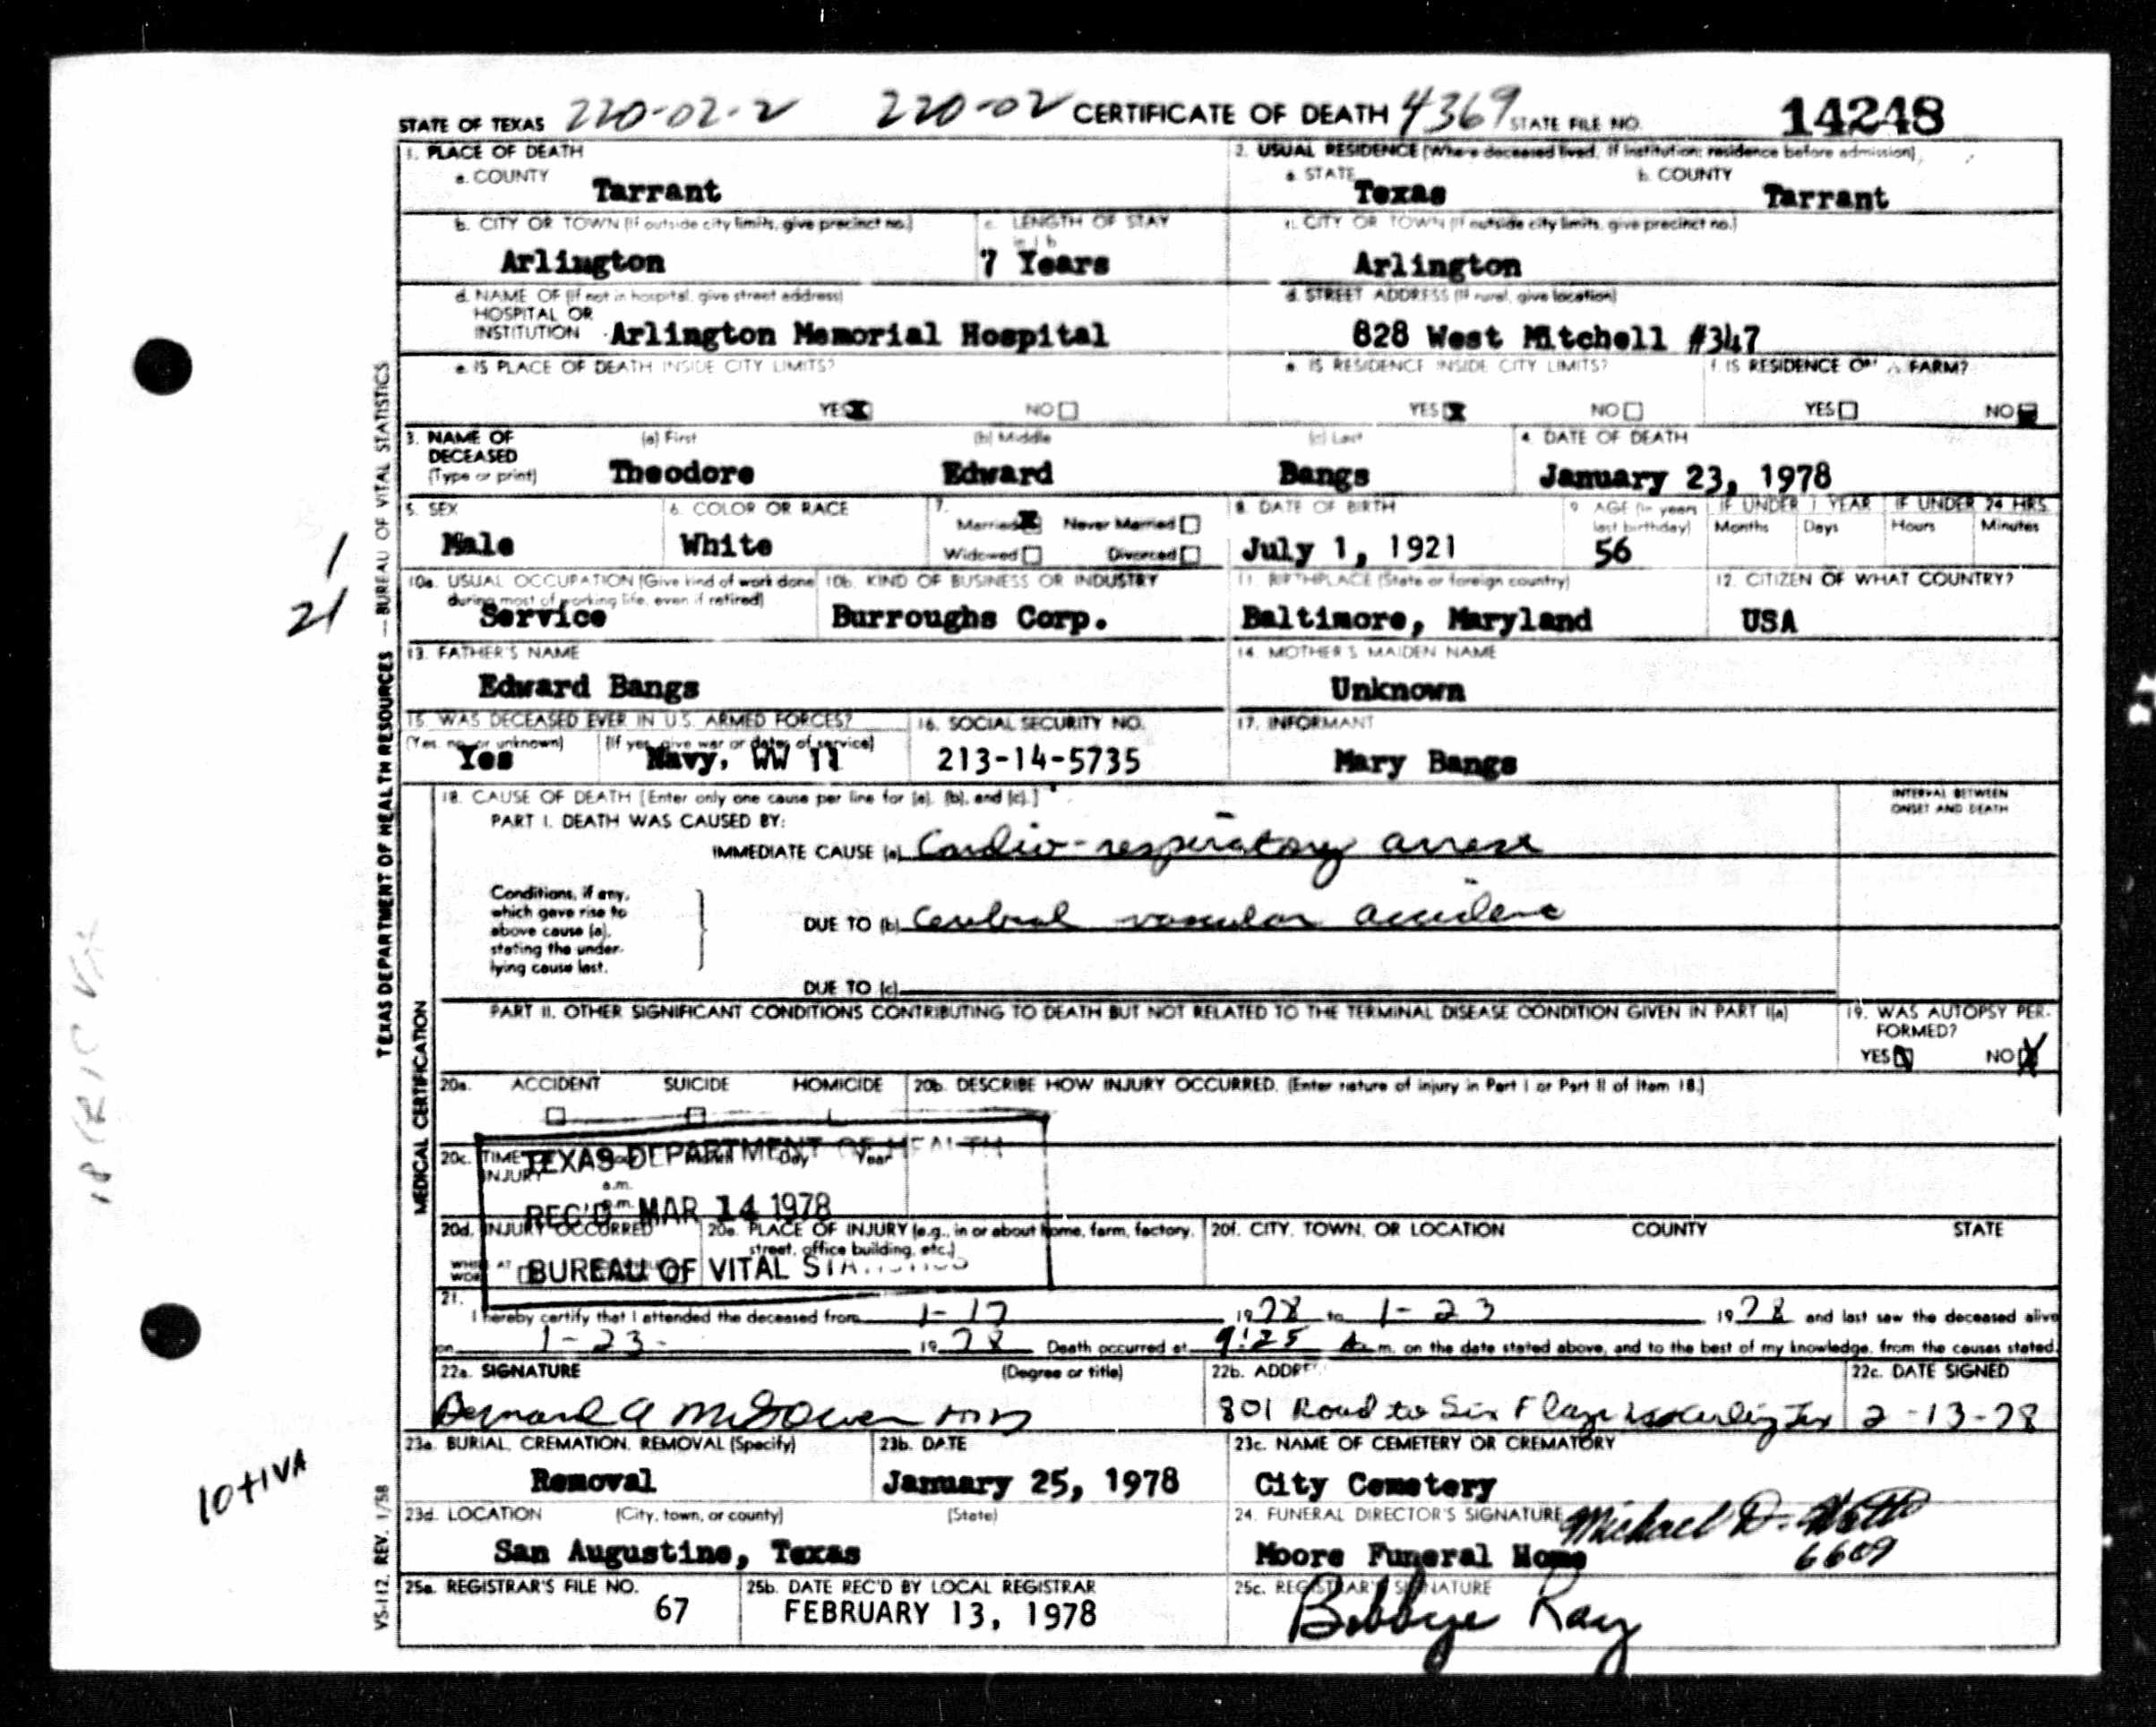 STATE OF TEXAS 220-02-2 220-02 CERTIFICATE OF DEATH 4369 STATE FILE NO. 14248
1. PLACE OF DEATH
a. COUNTY Tarrant
2. USUAL RESIDENCE (Where deceased lived. If institution: residence before admission)
a. STATE Texas b. COUNTY Tarrant
b. CITY OR TOWN (If outside city limits, give precinct no.) Arlington
c. LENGTH OF STAY in 1 b 7 Years
c. CITY OR TOWN (If outside city limits, give precinct no.) Arlington
d. NAME OF (If not in hospital, give street address)
HOSPITAL OR
INSTITUTION Arlington Memorial Hospital
d. STREET ADDRESS (If rural, give location)
828 West Mitchell #347
e. IS PLACE OF DEATH INSIDE CITY LIMITS?
YES X NO
e. IS RESIDENCE INSIDE CITY LIMITS?
YES X NO
f. IS RESIDENCE ON A FARM?
YES NO
3. NAME OF DECEASED (Type or print)
(a) First (b) Middle (c) Last
Theodore Edward Bangs
4. DATE OF DEATH
January 23, 1978
5. SEX
Male
6. COLOR OR RACE
White
7.
Married X Never Married
Widowed Divorced
8. DATE OF BIRTH
July 1, 1921
9. AGE (In years last birthday)
56
IF UNDER 1 YEAR IF UNDER 24 HRS.
Months Days Hours Minutes
10a. USUAL OCCUPATION (Give kind of work done
during most of working life, even if retired)
Service
10b. KIND OF BUSINESS OR INDUSTRY
Burroughs Corp.
11. BIRTHPLACE (State or foreign country)
Baltimore, Maryland
12. CITIZEN OF WHAT COUNTRY?
USA
13. FATHER'S NAME
Edward Bangs
14. MOTHER'S MAIDEN NAME
Unknown
15. WAS DECEASED EVER IN U.S. ARMED FORCES?
(Yes, no, or unknown) (If yes, give war or dates of service)
Yes Navy, WW II
16. SOCIAL SECURITY NO.
213-14-5735
17. INFORMANT
Mary Bangs
18. CAUSE OF DEATH [Enter only one cause per line for (a), (b), and (c).]
INTERVAL BETWEEN
ONSET AND DEATH
PART I. DEATH WAS CAUSED BY:
IMMEDIATE CAUSE (a) Cardio-respiratory arrest
Conditions, if any,
which gave rise to
above cause (a),
stating the under-
lying cause last.
DUE TO (b) Cerebral vascular accident
DUE TO (c)
PART II. OTHER SIGNIFICANT CONDITIONS CONTRIBUTING TO DEATH BUT NOT RELATED TO THE TERMINAL DISEASE CONDITION GIVEN IN PART I(a)
19. WAS AUTOPSY PER-
FORMED?
YES NO X
20a. ACCIDENT SUICIDE HOMICIDE
20b. DESCRIBE HOW INJURY OCCURRED. (Enter nature of injury in Part I or Part II of Item 18.)
20c. TIME
INJURY
Day Year
a.m.
TEXAS DEPARTMENT OF HEALTH
REC'D MAR 14 1978
BUREAU OF VITAL STATISTICS
20d. INJURY OCCURRED
20e. PLACE OF INJURY (e.g., in or about home, farm, factory,
street, office building, etc.)
20f. CITY, TOWN, OR LOCATION COUNTY STATE
21.
I hereby certify that I attended the deceased from 1-17 1978 to 1-23 1978 and last saw the deceased alive
on 1-23- 1978 Death occurred at 9:25 A.m. on the date stated above, and to the best of my knowledge, from the causes stated.
22a. SIGNATURE (Degree or title)
Bernard A McGowen MD
22b. ADDRESS
801 Road to Six Flags
22c. DATE SIGNED
2-13-78
23a. BURIAL, CREMATION, REMOVAL (Specify)
Removal
23b. DATE
January 25, 1978
23c. NAME OF CEMETERY OR CREMATORY
City Cemetery
23d. LOCATION (City, town, or county) (State)
San Augustine, Texas
24. FUNERAL DIRECTOR'S SIGNATURE Michael D.
Moore Funeral Home 6609
25a. REGISTRAR'S FILE NO.
67
25b. DATE REC'D BY LOCAL REGISTRAR
FEBRUARY 13, 1978
25c. REGISTRAR'S SIGNATURE
Bobbye Ray
TEXAS DEPARTMENT OF HEALTH RESOURCES — BUREAU OF VITAL STATISTICS
MEDICAL CERTIFICATION
VS-112, REV. 1/58
1
21
10+1VA